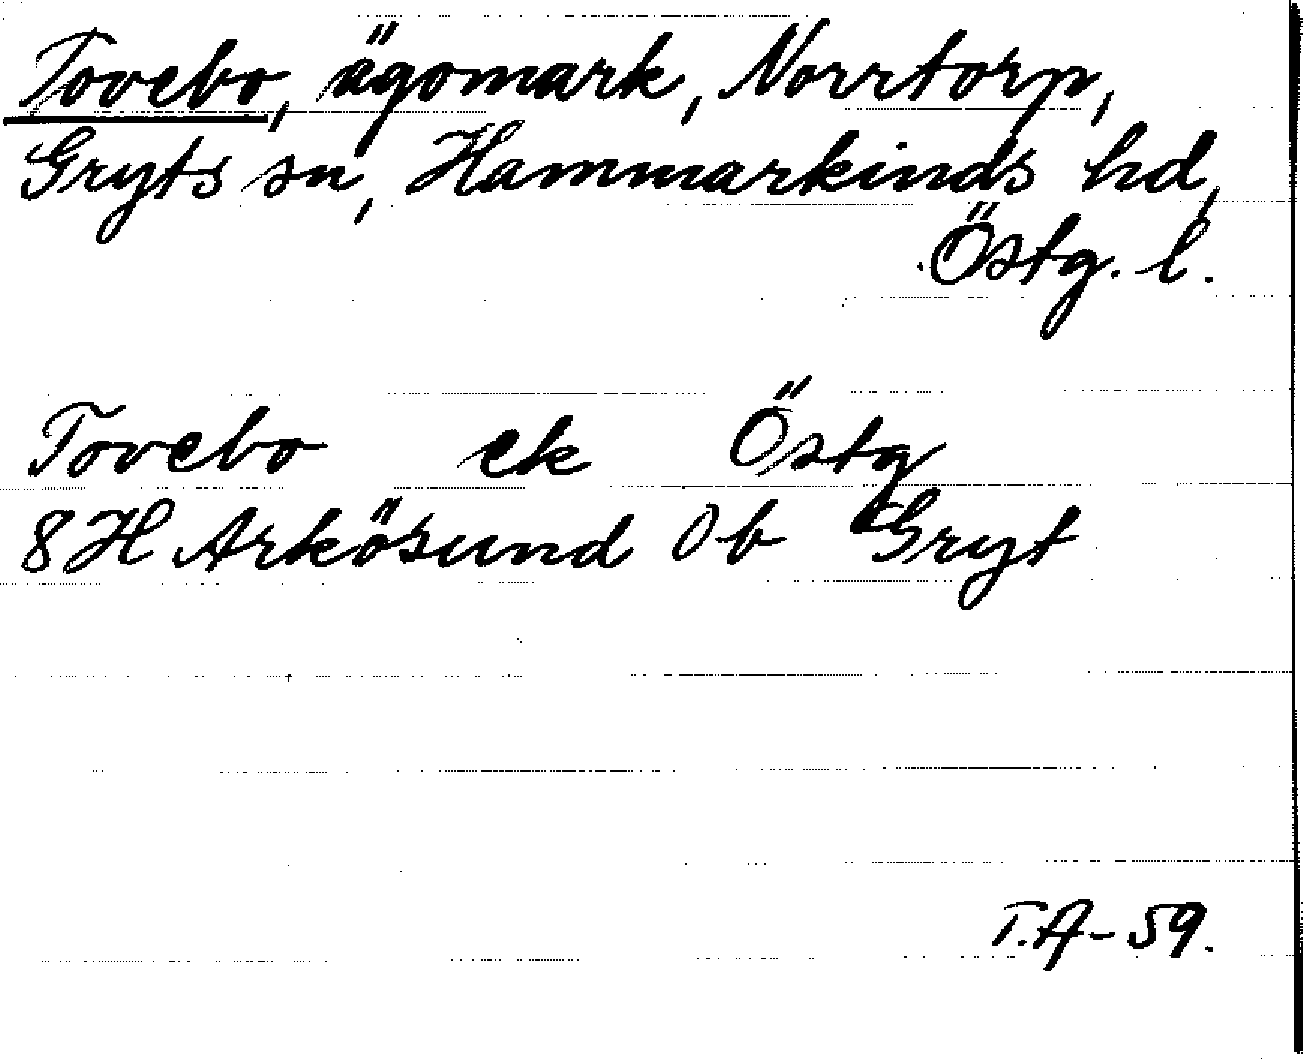 Tovebo, ägomark, Norrtorp,
Gryts sn, Hammarkinds hd,
Östg. l.
Tovebo ek Östg
8H Arkösund 0b Gryt
T.A-59.